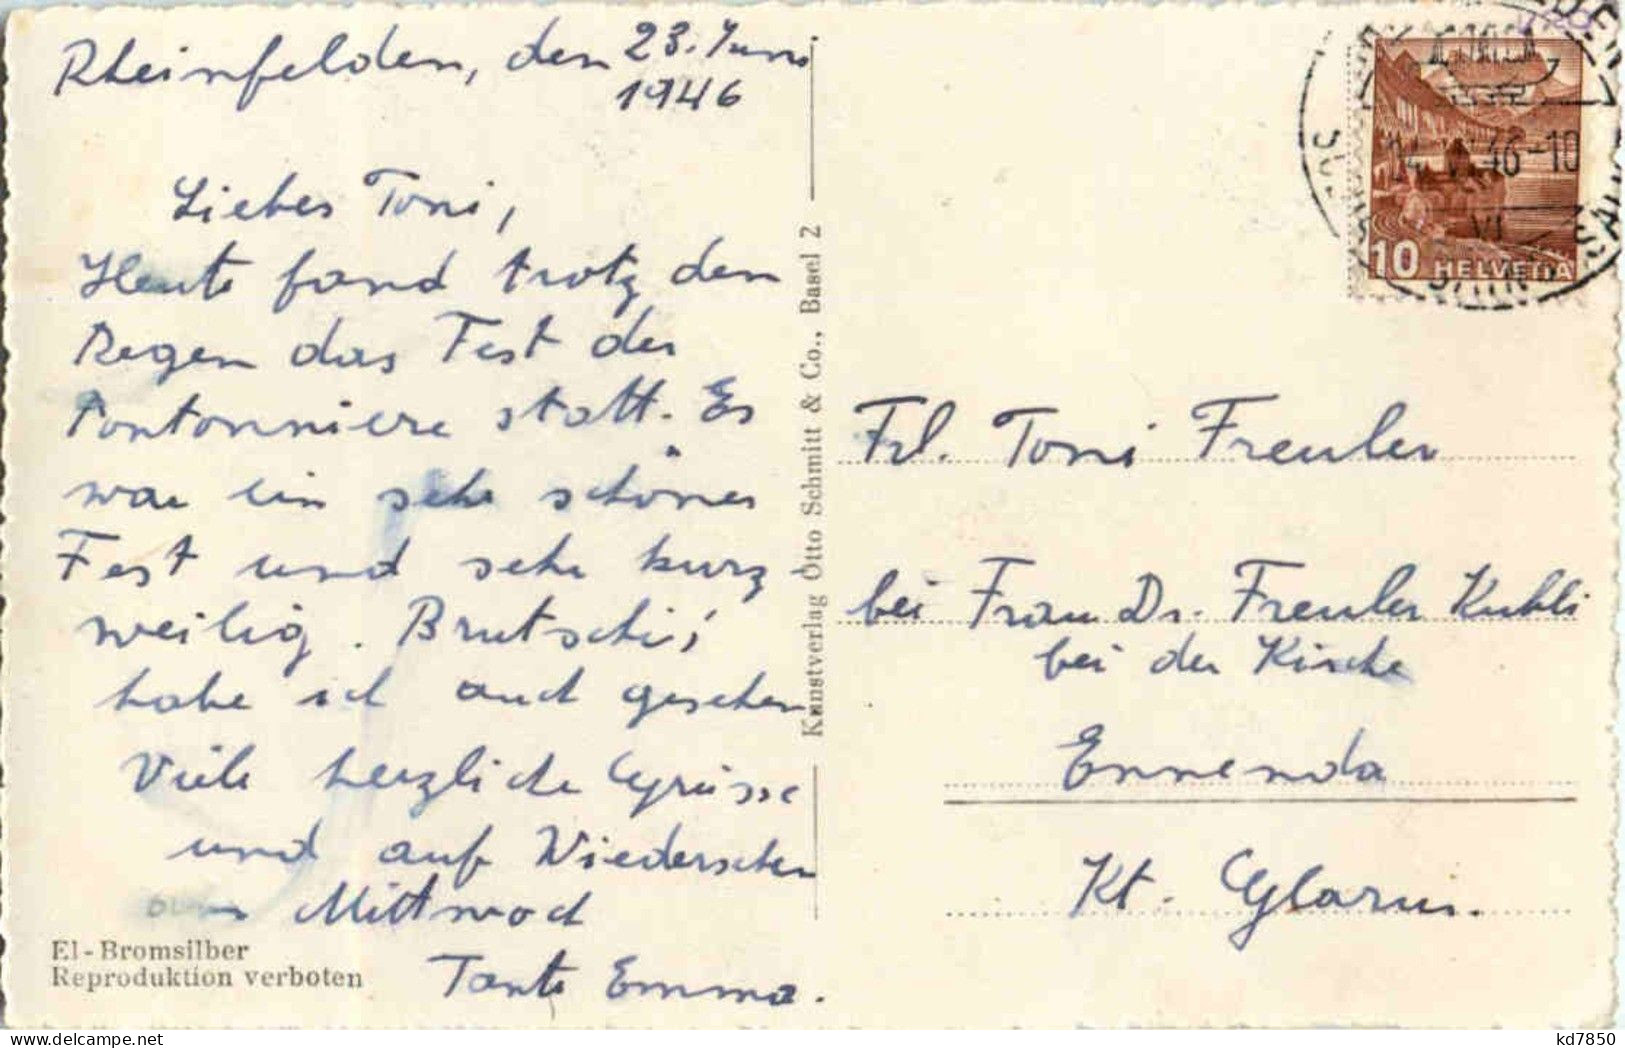 Rheinfelden, den 23. Juni
1946
Liebes Toni,
Heute fand trotz dem
Regen das Fest der
Pontonniere statt. Es
war ein sehr schönes
Fest und sehr kurz-
weilig. Brutschi's
habe ich auch gesehen
Viele herzliche Grüsse
und auf Wiedersehen
Mittwoch
Tante Emma.
El-Bromsilber
Reproduktion verboten
Kunstverlag Otto Schmitt & Co., Basel 2
10 HELVETIA
VI. 46-10
VI
Frl. Toni Freuler
bei Frau Dr. Freuler Kubli
bei der Kirche
Ennenda
Kt. Glarus.
kd7850